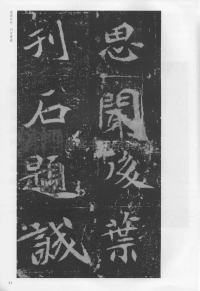 思聞後葉
刊石題誠